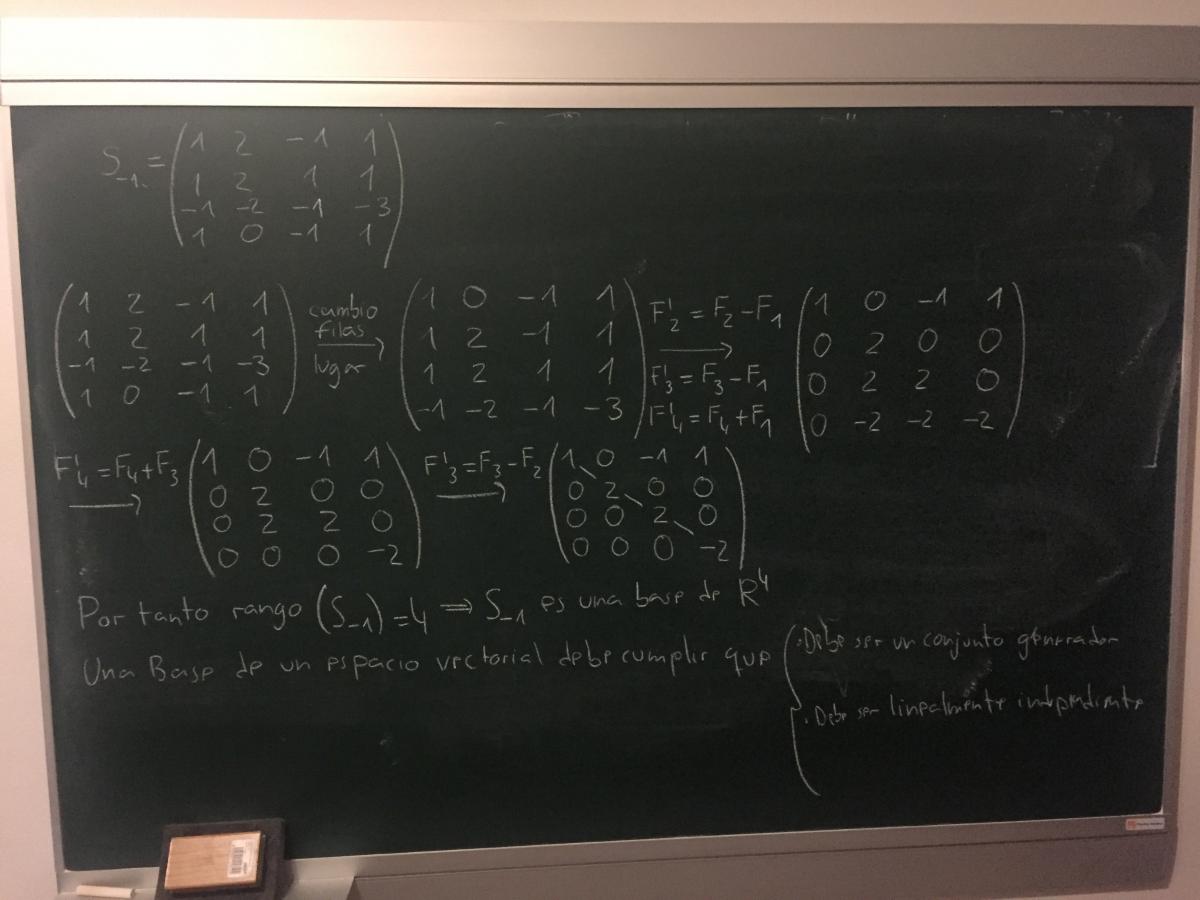 S₋₁ = ( 1 2 -1 1
1 2 1 1
-1 -2 -1 -3
1 0 -1 1 )
( 1 2 -1 1
1 2 1 1
-1 -2 -1 -3
1 0 -1 1 )
cambio
filas
lugar
→
( 1 0 -1 1
1 2 -1 1
1 2 1 1
-1 -2 -1 -3 )
F'₂ = F₂ - F₁
→
F'₃ = F₃ - F₁
F'₄ = F₄ + F₁
( 1 0 -1 1
0 2 0 0
0 2 2 0
0 -2 -2 -2 )
F'₄ = F₄ + F₃
→
( 1 0 -1 1
0 2 0 0
0 2 2 0
0 0 0 -2 )
F'₃ = F₃ - F₂
→
( 1 0 -1 1
0 2 0 0
0 0 2 0
0 0 0 -2 )
Por tanto rango (S₋₁) = 4 ⇒ S₋₁ es una base de R⁴
Una Base de un espacio vectorial debe cumplir que
· Debe ser un conjunto generador
· Debe ser linealmente independiente